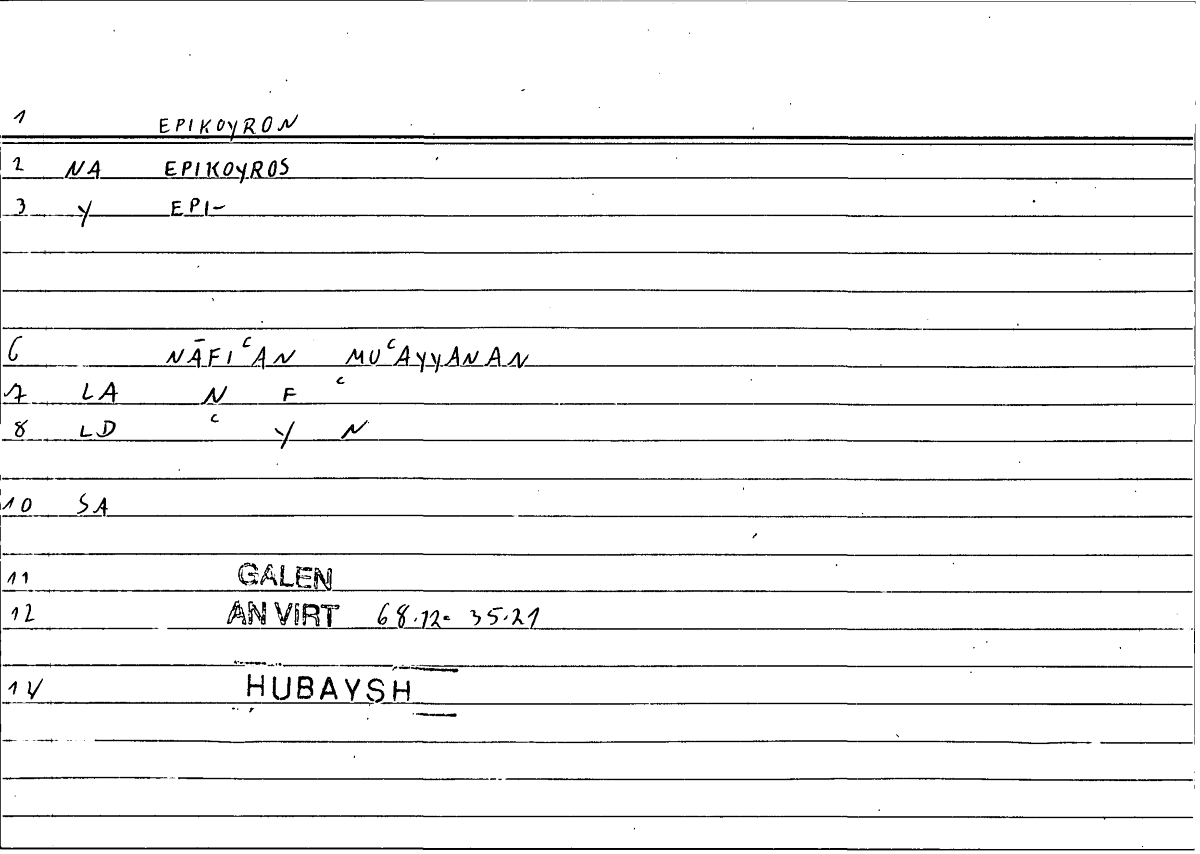 1 EPIKOYRON
2 NA EPIKOYROS
3 Y EPI-
6 NĀFIʿAN MUʿAYYANAN
7 LA N F ʿ
8 LD ʿ Y N
10 SA
11 GALEN
12 AN VIRT 68.12= 35.21
14 HUBAYSH